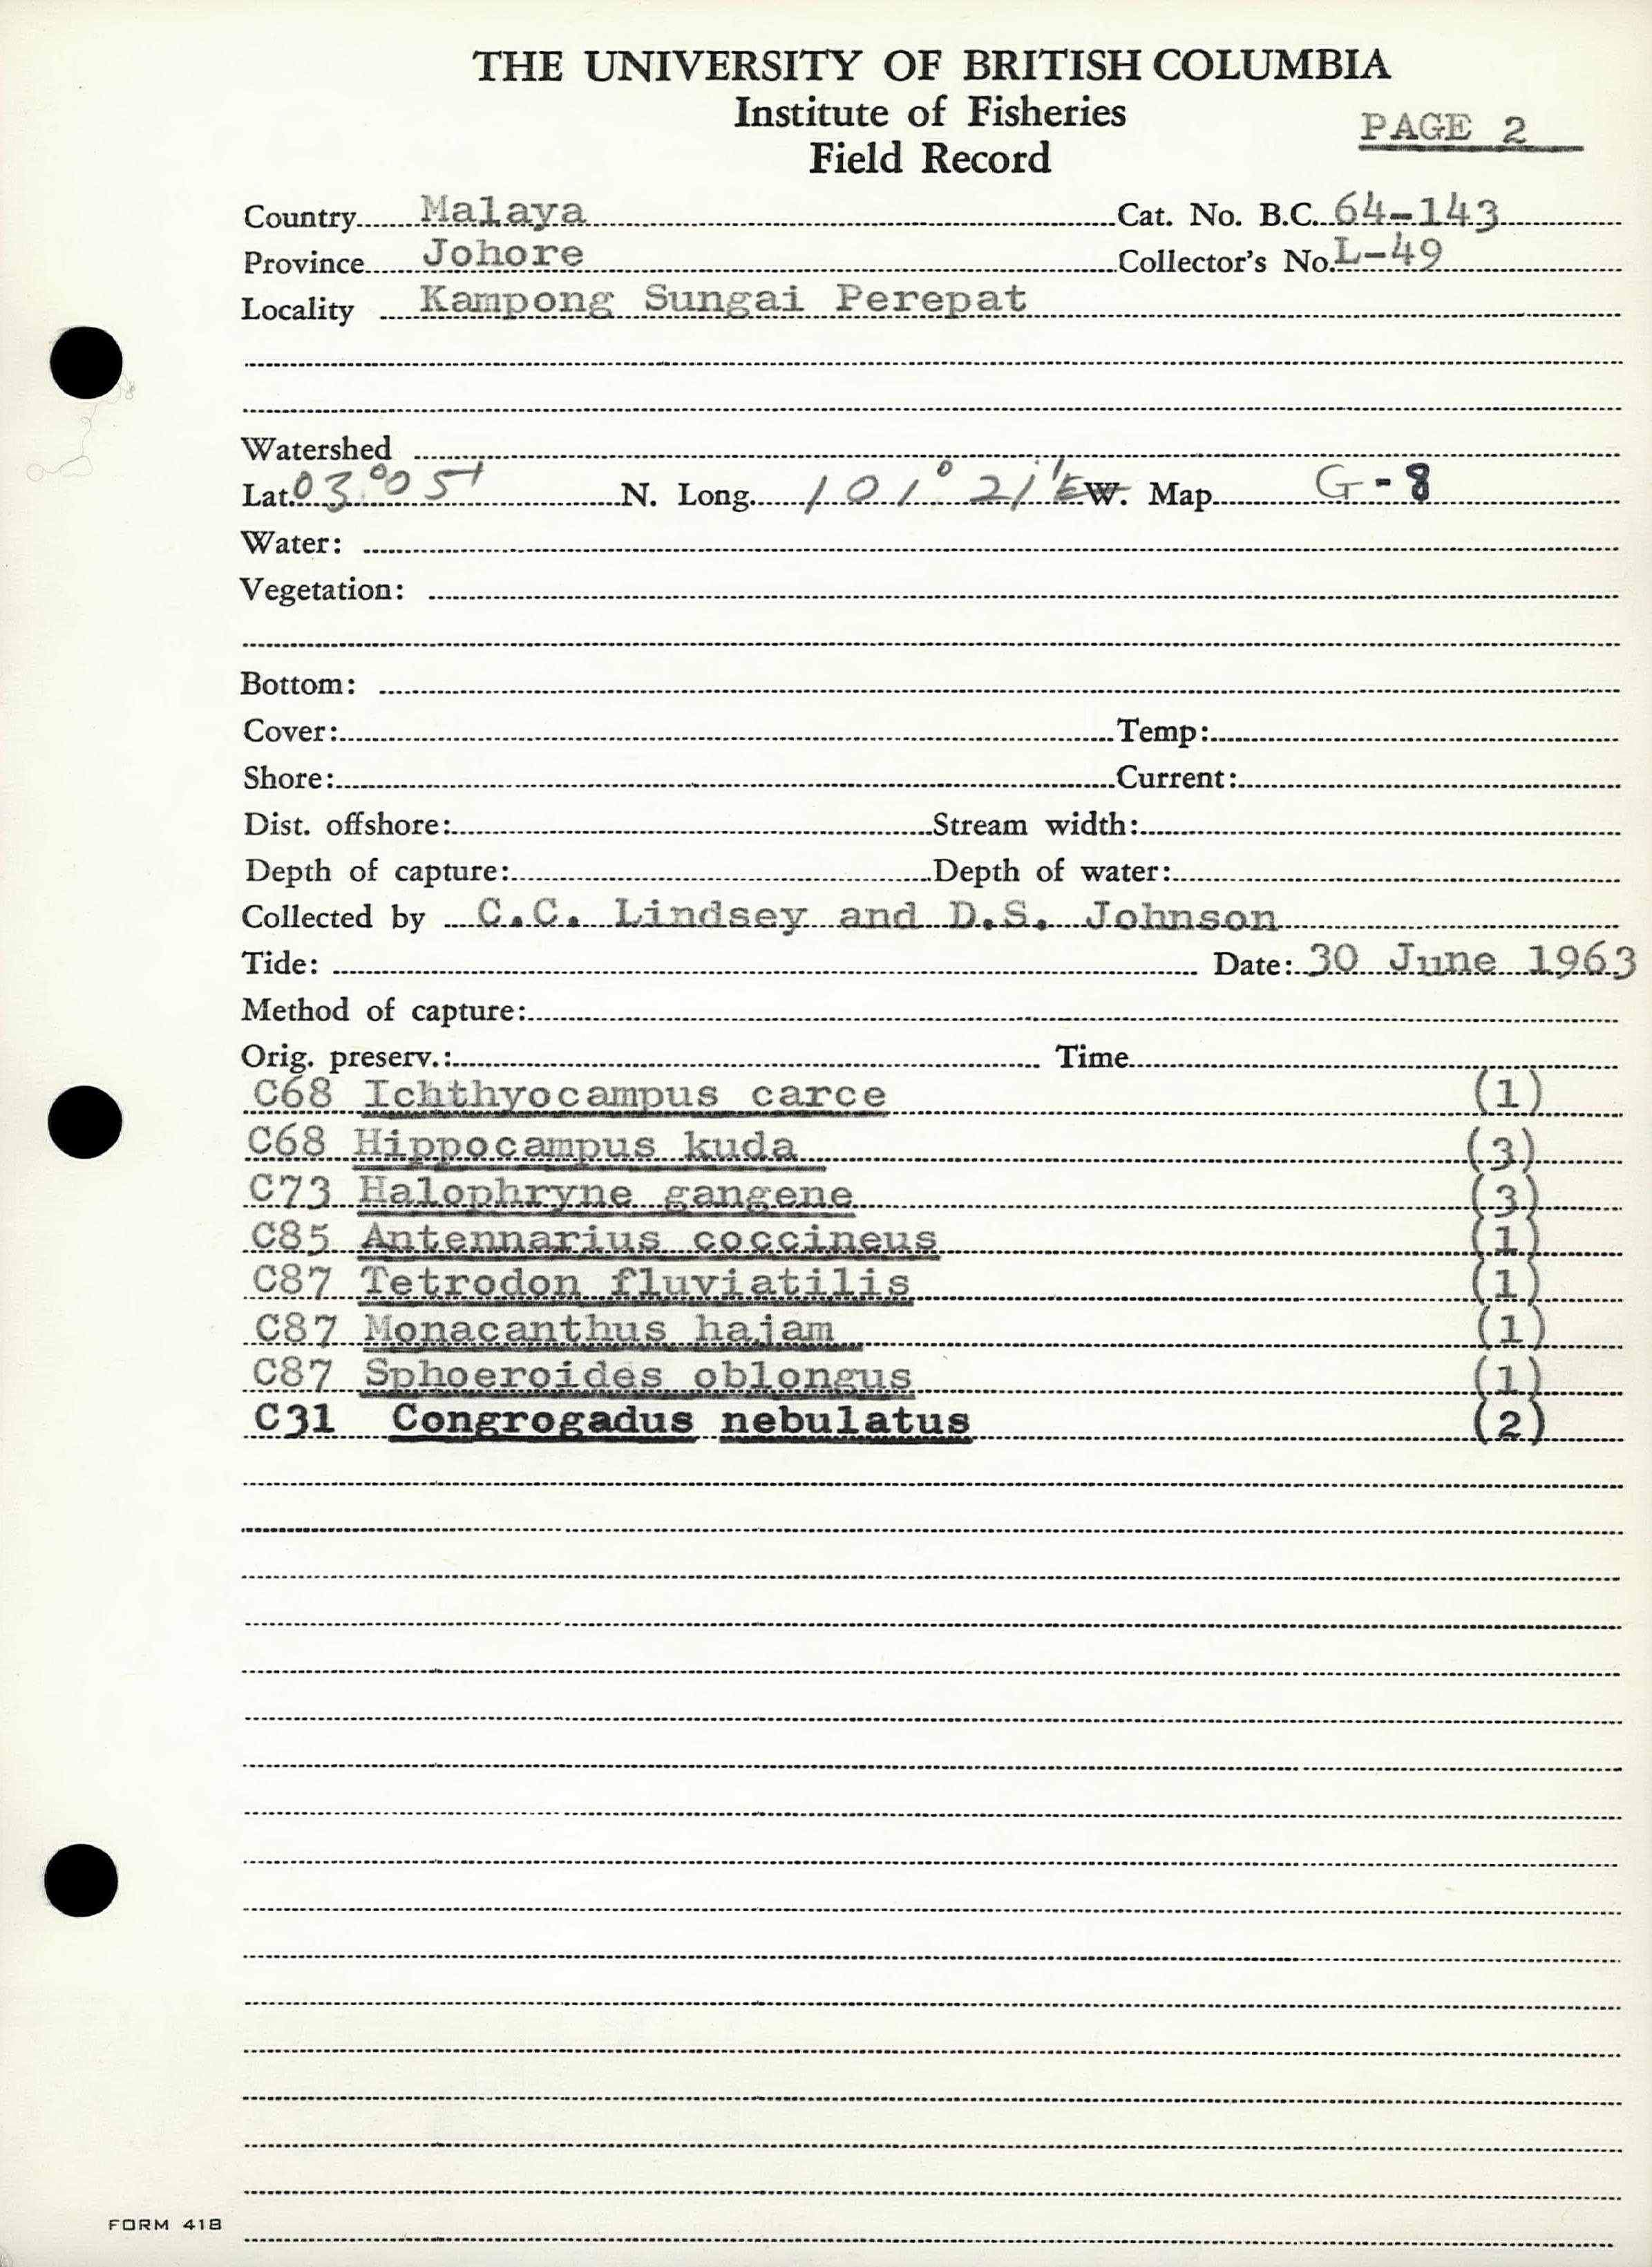 THE UNIVERSITY OF BRITISH COLUMBIA
Institute of Fisheries
PAGE 2
Field Record
Country Malaya Cat. No. B.C. 64-143
Province Johore Collector's No. L-49
Locality Kampong Sungai Perepat
Watershed
Lat. 03°05' N. Long. 101°21' E W. Map G-8
Water:
Vegetation:
Bottom:
Cover: Temp:
Shore: Current:
Dist. offshore: Stream width:
Depth of capture: Depth of water:
Collected by C.C. Lindsey and D.S. Johnson
Tide: Date: 30 June 1963
Method of capture:
Orig. preserv.: Time
C68 Ichthyocampus carce (1)
C68 Hippocampus kuda (3)
C73 Halophryne gangene (3)
C85 Antennarius coccineus (1)
C87 Tetrodon fluviatilis (1)
C87 Monacanthus hajam (1)
C87 Sphoeroides oblongus (1)
C31 Congrogadus nebulatus (2)
FORM 41B